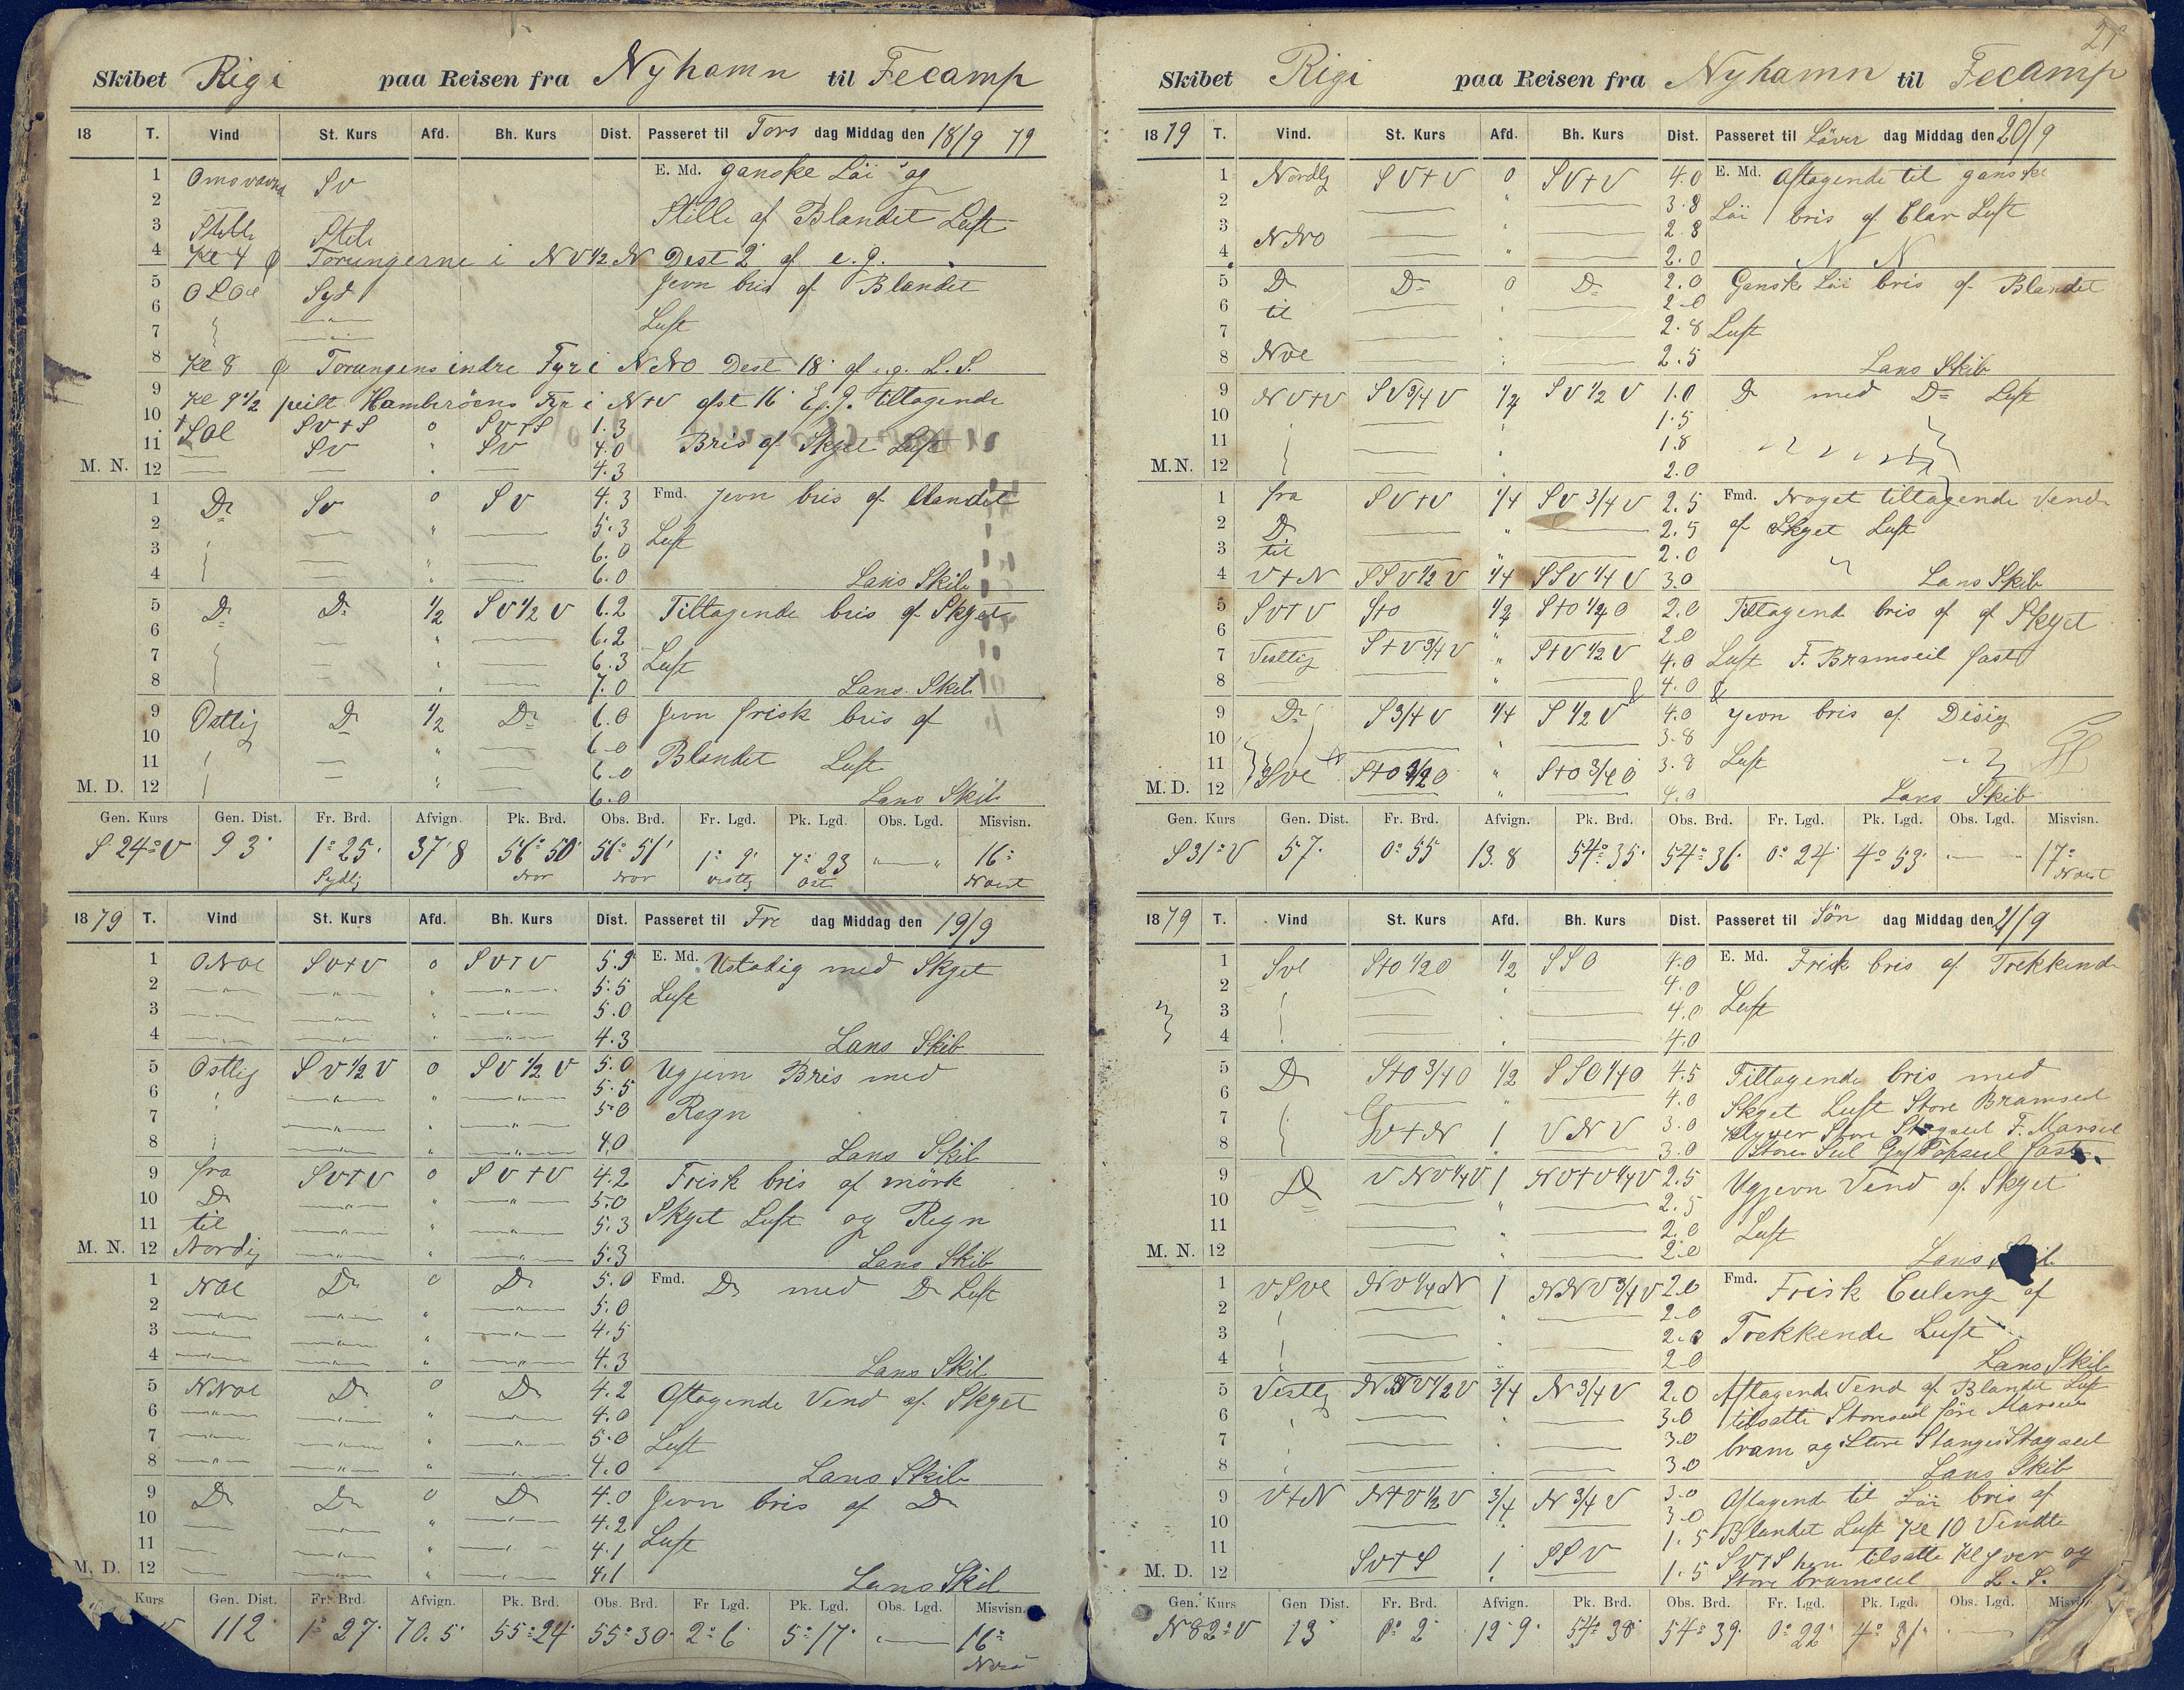 Skibet Rigi paa Reisen fra Nyhamn til Fecamp
18 T. Vind St. Kurs Afd. Bh. Kurs Dist. Passeret til Tors dag Middag den 18/9 79
1 Sv E. Md. ganske Löi og
2 Stille af Blandet Luft
3 Stille Stile
4 Kl 4 Torungerne i NV½N Dest 2' af e.g.
5 Syd Jevn bris af Blandet
6 Luft
7
8 Kl 8 Torungens indre Fyr i NNO Dest 18' af e.g. L.S.
9 Kl 9½ peilt Fyr i N+V afst 16' E.g. tiltagende
10 SOl SV+S 0 SV+S 1.3
11 SV " SV 4.0 Bris af Skyet Luft
M. N. 12 4.3
1 Do SV 0 SV 4.3 Fmd. Jevn bris af Blandet
2 " 5.3 Luft
3 " 6.0
4 " 6.0 Lans Skib
5 Do Do ½ SV½V 6.2 Tiltagende bris af Skyet
6 " 6.2
7 " 6.3 Luft
8 " 7.0 Lans Skib
9 Östlig Do ½ Do 6.0 Jevn frisk bris af
10 " 6.0
11 " 6.0 Blandet Luft
M. D. 12 " 6.0 Lans Skib
Gen. Kurs Gen. Dist. Fr. Brd. Afvign. Pk. Brd. Obs. Brd. Fr. Lgd. Pk. Lgd. Obs. Lgd. Misvisn.
S 24° V 93' 1° 25' 37'8 56° 50' 56° 51' 1° 9' 7° 23 "—" 16°
Sydlig Nor Nor vestlig Ost Nvest
1879 T. Vind St. Kurs Afd. Bh. Kurs Dist. Passeret til Fre dag Middag den 19/9
1 ONOl SV+V 0 SV+V 5.5 E. Md. Ustadig med Skyet
2 " 5.5 Luft
3 " 5.0
4 " 4.3 Lans Skib
5 Östlig SV½V 0 SV½V 5.0 Ugjevn Bris med
6 " 5.5
7 " 5.0 Regn
8 " 4.0 Lans Skib
9 fra SV+V 0 SV+V 4.2 Frisk bris af mörk
10 Do " 5.0
11 til " 5.3 Skyet Luft og Regn
M. N. 12 Nordig " 5.3 Lans Skib
1 NOl Do 0 Do 5.0 Fmd. Do med Do Luft
2 " 5.0
3 " 4.5
4 " 4.3 Lans Skib
5 NNOl Do 0 Do 4.2 Aftagende Vend af Skyet
6 " 4.0
7 " 5.0 Luft
8 " 4.0 Lans Skib
9 Do Do 0 Do 4.0 Jevn bris af Do
10 " 4.2
11 " 4.1 Luft
M. D. 12 " 4.1 Lans Skib
Kurs Gen. Dist. Fr. Brd. Afvign. Pk. Brd. Obs. Brd. Fr Lgd. Pk. Lgd. Obs. Lgd. Misvisn.
V 112' 1° 27' 70.5' 55° 24' 55° 30' 2° 6' 5° 17' "— 16°
21
Skibet Rigi paa Reisen fra Nyhamn til Fecamp
1879 T. Vind. St. Kurs Afd. Bh. Kurs Dist. Passeret til Löver dag Middag den 20/9
1 Nordlig SV+V 0 SV+V 4.0 E. Md. Aftagende til ganske
2 " 3.8 Löi bris af Clar Luft
3 NNO 2.8
4 " 2.0 N N
5 Do Do 0 Do 2.0 Ganske Löi bris af Blandet
6 til 2.0
7 2.8 Luft
8 NVl 2.5 Lans Skib
9 NV+V SV¾V ¼ SV½V 1.0 Do med Do Luft
10 1.5
11 1.8
M.N. 12 2.0
1 fra SV+V ¼ SV¾V 2.5 Fmd. Noget tiltagende Vend
2 Do 2.5 af Skyet Luft
3 til 2.0
4 V+N SSV½V ¼ SSV¼V 3.0 Lans Skib
5 SV+V S+O ½ S+O½O 2.0 Tiltagende bris af af Skyet
6 2.0
7 Vestlig S+V¾V " S+V½V 4.0 Luft F. Bramseil fast
8 4.0
9 Do S¾V ¼ S½V 4.0 Jevn bris af Disig
10 3.8
11 SVl " S+O¾O 3.8 Luft
M. D. 12 4.0 Lans Skib
Gen. Kurs Gen. Dist. Fr. Brd. Afvign. Pk. Brd. Obs. Brd. Fr. Lgd. Pk. Lgd. Obs. Lgd. Misvisn.
S 31° V 57' 0° 55 13.8 54° 35' 54° 36' 0° 24' 4° 53' — 17°
Nvest
1879 T. Vind St. Kurs Afd. Bh. Kurs Dist. Passeret til Sön dag Middag den 21/9
1 SVl S+O½O ½ SSO 4.0 E. Md. Frisk bris af Trekkende
2 4.0
3 4.0 Luft
4 4.0
5 Do S+O¾O ½ SSO¼O 4.5 Tiltagende bris med
6 4.0 Skyet Luft Store Bramseil
7 V+N 1 VNV 3.0 Klyver Store Stagseil F. Marseil
8 3.0 Store Seil Gaf Topseil fast
9 Do VNV¼V 1 NV+V¼V 2.5 Ugjevn Vend af Skyet
10 2.5
11 2.0 Luft
M. N. 12 2.0 Lans
1 VSVl NV¼N 1 NNV¾V 2.0 Fmd. Frisk Culing af
2 2.0
3 2.0 Trekkende Luft
4 2.0 Lans Skib
5 Vestlig ¾ N¾V 2.0 Aftagende Vend af Blandet Luft
6 3.0 tilsatte Storeseil före Marseil
7 3.0 bram og Store Stange Stagseil
8 3.0 Lans Skib
9 V+N N+V½V ¾ N¾V 3.0 Aftagende til Löi bris af
10 3.0 Blandet Luft Kl 10 Vendte
11 SV+S 1 SSV 1.5 SV+S hen tilsatte Klyver og
M. D. 12 1.5 Store bramseil L. S.
Gen. Kurs Gen Dist. Fr. Brd. Afvign. Pk. Brd. Obs. Brd. Fr. Lgd. Pk. Lgd. Obs. Lgd. Misvisn
N 82° V 13' 0° 2' 12'9' 54° 38' 54° 39' 0° 22' 4° 31' —